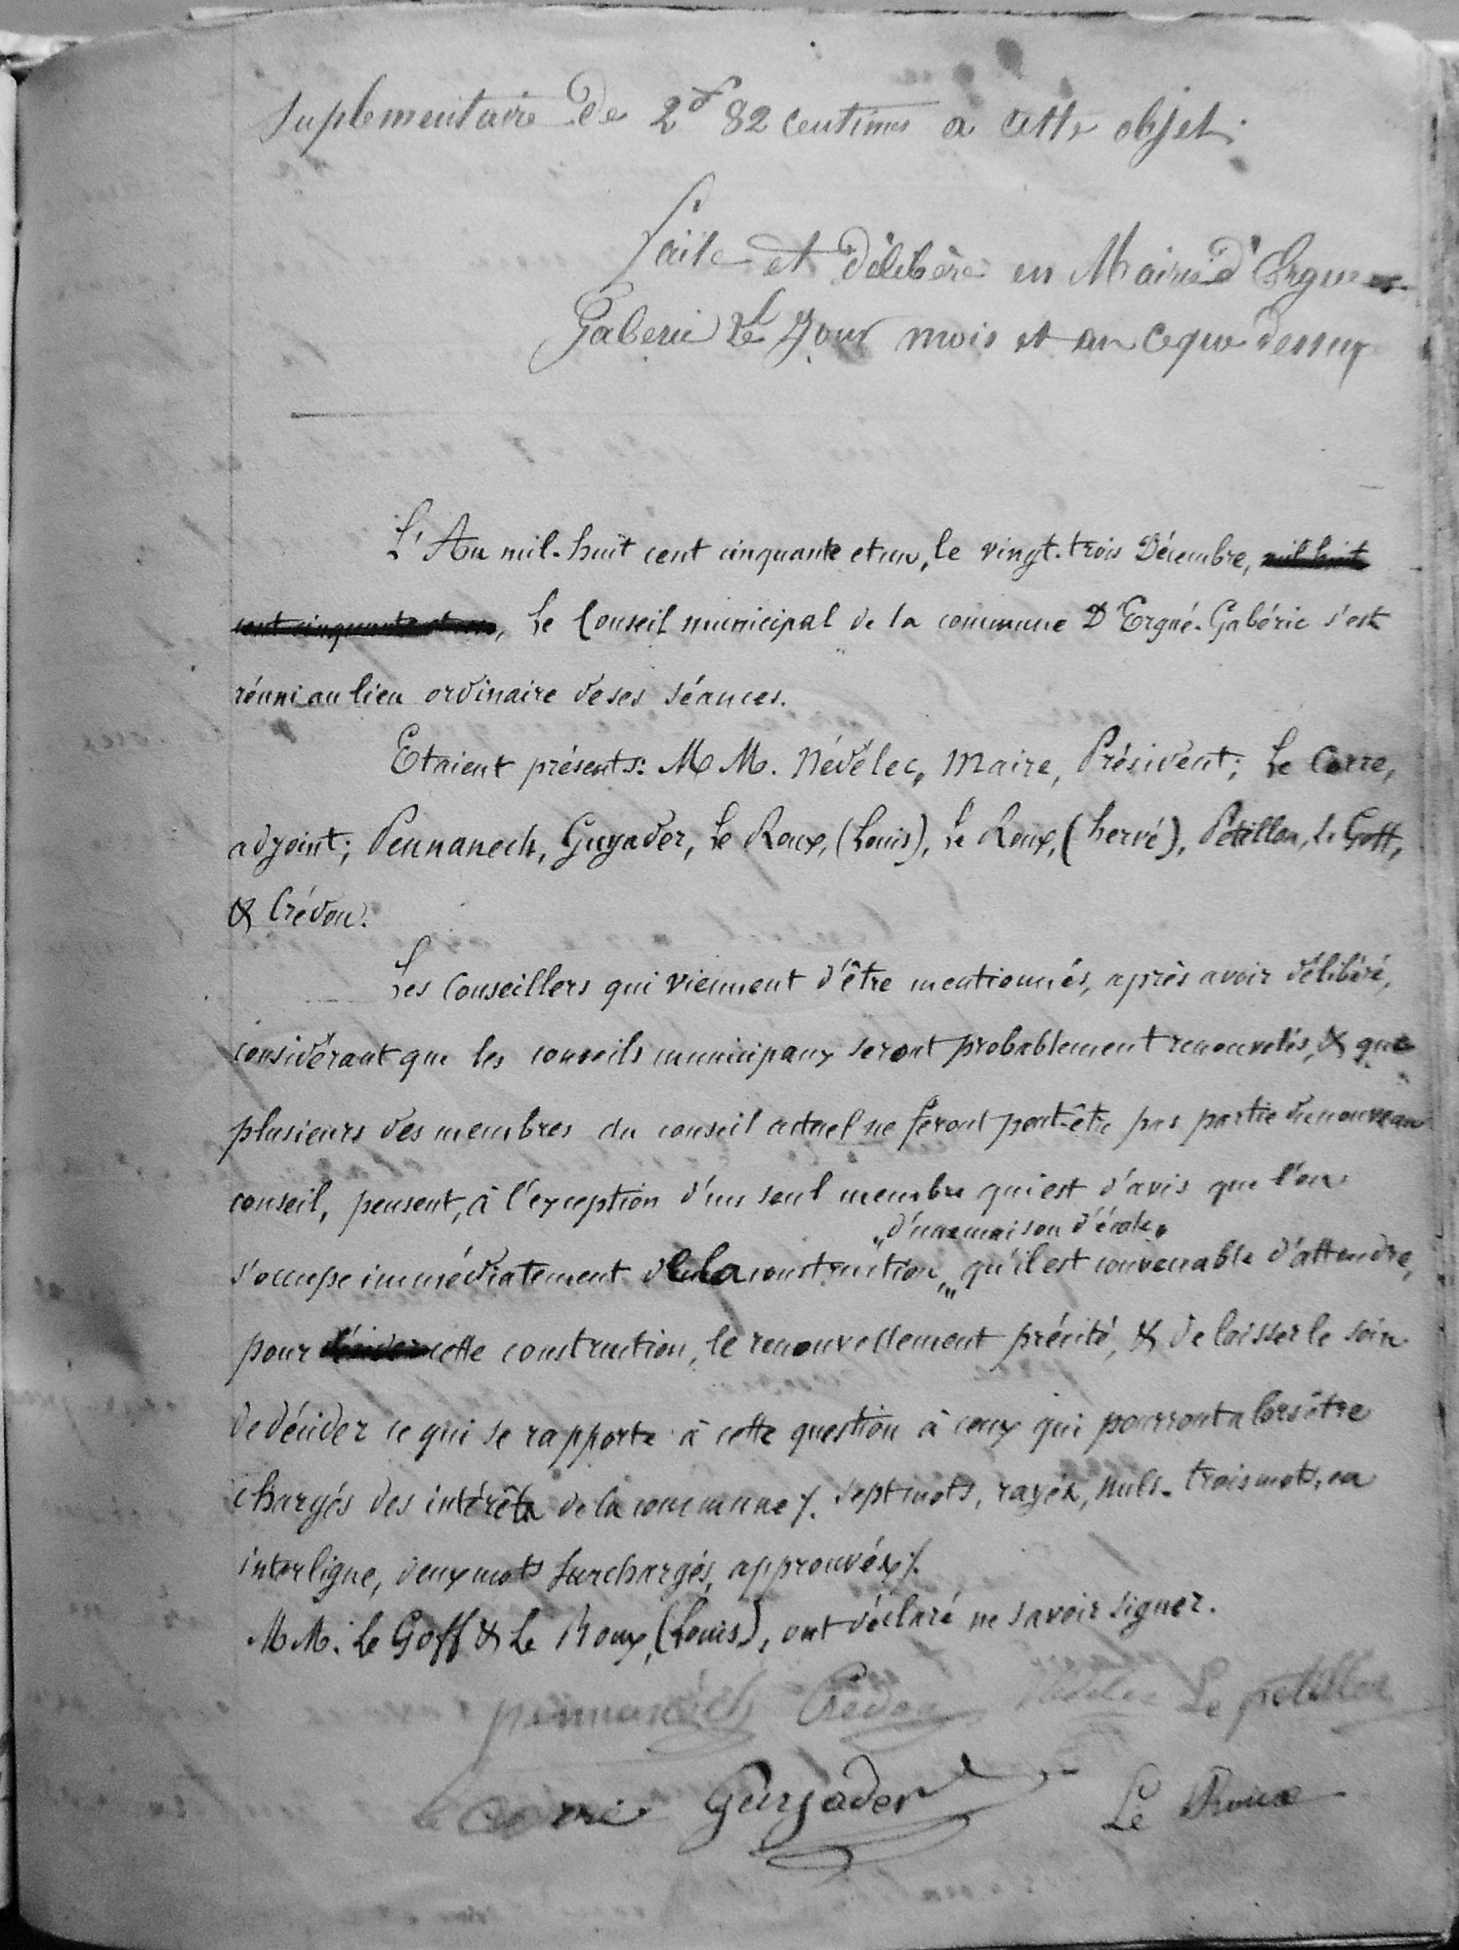 suplementaire de 2f 82 centimes a cette objet.
faite et délibéré en Mairie d'Ergue
Gaberic le Jour mois et an ceque dessus
L'An mil-huit cent cinquante et un, le vingt-trois Décembre, mil huit
cent cinquante et un, Le Conseil municipal de la commune D'Ergué-Gabéric s'est
réuni au lieu ordinaire de ses séances.
Etaient présents: M M. Nédélec, Maire, Président; Le Corre,
adjoint; Pennanech, Guyader, Le Roux, (Louis), Le Roux, (hervé), Pétillon, Le Goff,
& Crédou.
Les Conseillers qui viennent d'être mentionnés, après avoir délibéré,
considérant que les conseils municipaux seront probablement renouvelés, & que
plusieurs des membres du conseil actuel ne feront peut-être pas partie du nouveau
conseil, pensent, à l'exception d'un seul membre qui est d'avis que l'on
„d'une maison d'école„
s'occupe immédiatement de la construction „ qu'il est convenable d'attendre,
pour décider cette construction, le renouvellement précité, & de laisser le soin
de décider ce qui se rapporte à cette question à ceux qui pourront alors être
chargés des intérêts de la commune /. Sept mots, rayés, nuls. trois mots, en
interligne, deux mots surchargés, approuvés /.
M M. Le Goff & Le Roux, (Louis), ont déclaré ne savoir signer.
pennanech Credou Nédelec Le petillon
le corre Guyader Le Roux